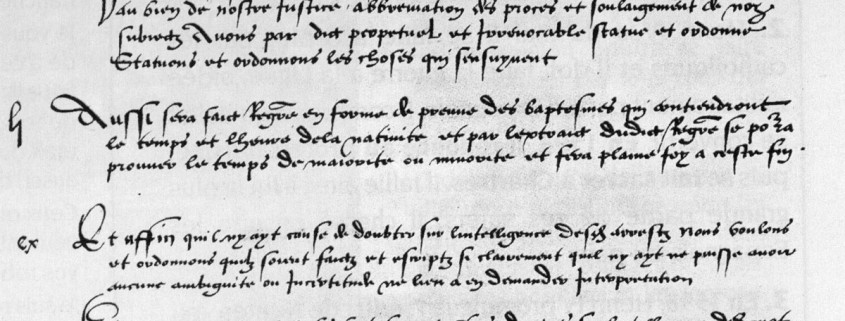 au bien de nostre Justice abbreviation des proces et soulaigement de noz
subiectz Avons par edict perpetuel et Irrevocable statue et ordonné
Statuons et ordonnons les choses qui sensuyvent
li Aussi sera faict Regre en forme de preuve des baptesmes qui contiendront
le temps et lheure dela nativité et par lextraict dudict Regre se pora
prouver le temps de maiorité ou minorité et fera plaine foy a ceste fin
cx Et affin quil ny ayt cause de doubter sur lintelligence desdz arrestz Nous voulons
et ordonnons quilz soient faictz et escriptz si clairement quil ny ayt ne puisse avoir
aucune ambiguite ou Incertitude ne lieu a en demander Interpretation